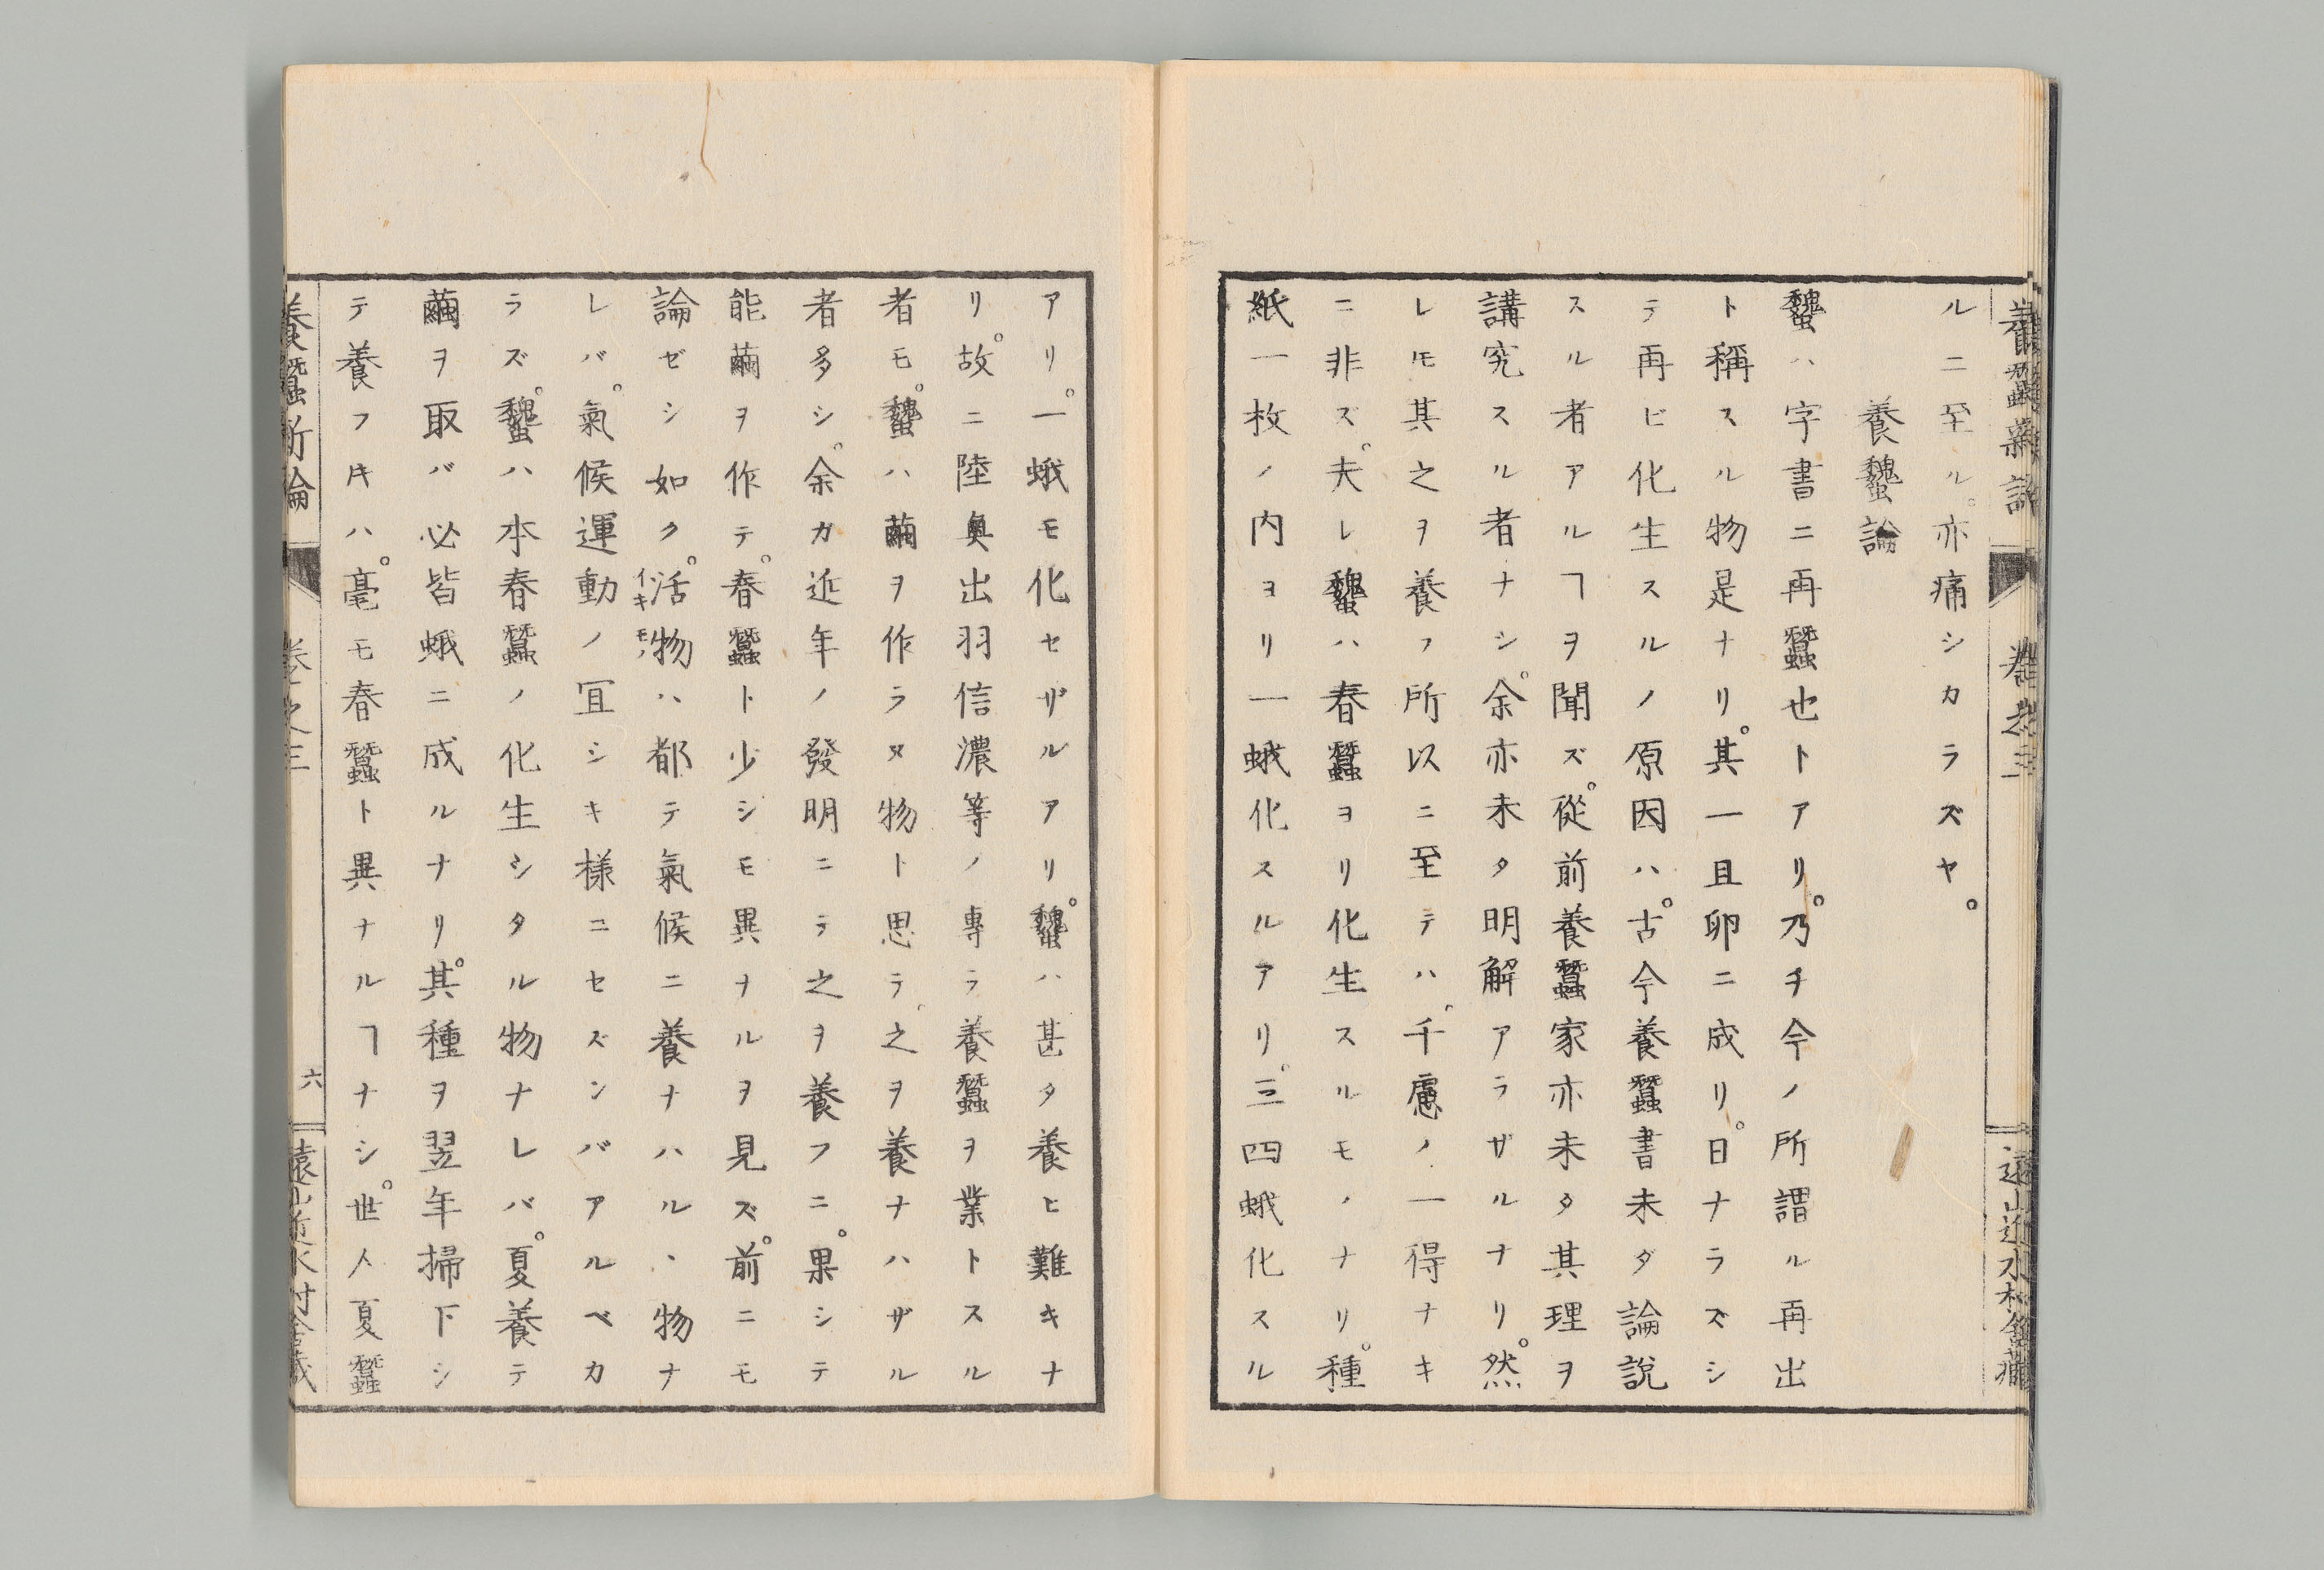 養蠶新論 卷之三 遠山近水村舍藏
ルニ至ル。亦痛シカラズヤ。
養⿱魏䖵論
⿱魏䖵ハ字書ニ再蠶也トアリ。乃チ今ノ所謂ル再出
ト稱スル物是ナリ。其一且卵ニ成リ。日ナラズシ
テ再ビ化生スルノ原因ハ。古今養蠶書未ダ論説
スル者アルヿヲ聞ズ。從前養蠶家亦未タ其理ヲ
講究スル者ナシ。余亦未タ明解アラザルナリ。然
レ𪜈其之ヲ養フ所以ニ至テハ。千慮ノ一得ナキ
ニ非ズ。夫レ⿱魏䖵ハ春蠶ヨリ化生スルモノナリ。種
紙一枚ノ内ヨリ一蛾化スルアリ。三四蛾化スル
アリ。一蛾モ化セザルアリ。⿱魏䖵ハ甚タ養ヒ難キナ
リ。故ニ陸奥出羽信濃等ノ專ラ養蠶ヲ業トスル
者モ。⿱魏䖵ハ繭ヲ作ラヌ物ト思ラ。之ヲ養ナハザル
者多シ。余ガ近年ノ發明ニテ之ヲ養フニ。果シテ
能繭ヲ作テ。春蠶ト少シモ異ナルヲ見ズ。前ニモ
論ゼシ如ク。活物イキモノハ都テ氣候ニ養ナハル、物ナ
レバ。氣候運動ノ冝シキ樣ニセズンバアルベカ
ラズ。⿱魏䖵ハ本春蠶ノ化生シタル物ナレバ。夏養テ
繭ヲ取バ必皆蛾ニ成ルナリ。其種ヲ翌年掃下シ
テ養フ𪜀ハ。毫モ春蠶ト異ナルヿナシ。世人夏蠶
養蠶新論 卷之三 六 遠山近水村舍藏